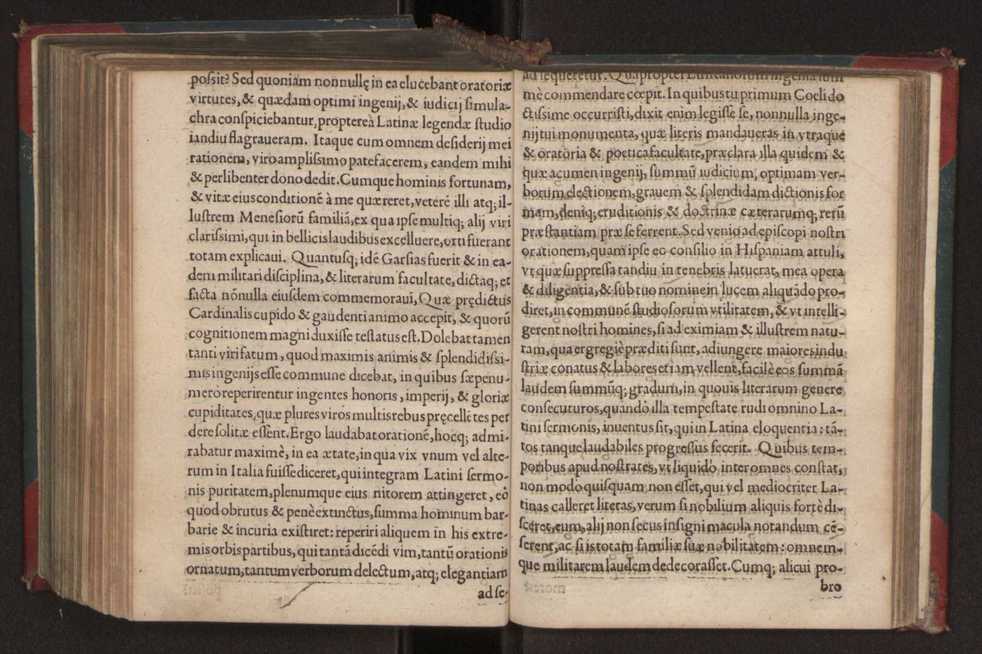 possit? Sed quoniam nonnullę in ea elucebant oratoriæ
virtutes, & quædam optimi ingenij, & iudicij simula-
chra conspiciebantur, proptereà Latinæ legendæ studio
iandiu flagraueram. Itaque cum omnem desiderij mei
rationem, viro amplissimo patefacerem, eandem mihi
& perlibenter dono dedit. Cumque hominis fortunam,
& vitæ eius conditionē à me quæreret, veterē illi atq; il-
lustrem Menesiorū familiā, ex qua ipse multiq; alij viri
clarissimi, qui in bellicis laudibus excelluere, orti fuerant
totam explicaui. Quantusq; idē Garsias fuerit & in ea-
dem militari disciplina, & literarum facultate, dictaq; et
facta nōnulla eiusdem commemoraui, Quæ prędictus
Cardinalis cupido & gaudenti animo accepit, & quorū
cognitionem magni duxisse testatus est. Dolebat tamen
tanti viri fatum, quod maximis animis & splendidissi-
mis ingenijs esse commune dicebat, in quibus sæpenu-
mero reperirentur ingentes honoris, imperij, & gloriæ
cupiditates, quæ plures viros multis rebus pręcellētes per
dere solitæ essent. Ergo laudabat orationē, hocq; admi-
rabatur maximè, in ea ætate, in qua vix vnum vel alte-
rum in Italia fuisse diceret, qui integram Latini sermo-
nis puritatem, plenumque eius nitorem attingeret, eò
quod obrutus & penè extunctus, summa hominum bar-
barie & incuria existiret: reperiri aliquem in his extre-
mis orbis partibus, qui tantā dicēdi vim, tantū orationis
ornatum, tantum verborum delectum, atq; elegantiam
ad se-
ad sequeretur. Quapropter
mè commendare cœpit. In quibus tu primum Coeli do
ctissime occurristi, dixit enim legisse se, nonnulla inge-
nij tui monumenta, quæ literis mandaueras in vtraque
& oratoria & poetica facultate, præclara illa quidem &
quæ acumen ingenij, summū iudicium, optimam ver-
borum electionem, grauem & splendidam dictionis for
mam, deniq; eruditionis & doctrinæ cæterarumq; rerū
præstantiam præ se ferrent. Sed venio ad episcopi nostri
orationem, quam ipse eo consilio in Hispaniam attuli,
vt quæ suppressa tandiu in tenebris latuerat, mea opera
& diligentia, & sub tuo nomine in lucem aliquādo pro-
diret, in communē studiosorum vtilitatem, & vt intelli-
gerent nostri homines, si ad eximiam & illustrem natu-
ram, qua ergregiè præditi sunt, adiungere maiores indu
striæ conatus & labores etiam vellent, facilè eos summā
laudem summūq; gradum, in quouis literarum genere
consecuturos, quando illa tempestate rudi omnino La-
tini sermonis, inuentus sit, qui in Latina eloquentia: tā-
tos tanque laudabiles progressus fecerit. Quibus tem-
poribus apud nostrates, vt liquidò inter omnes constat,
non modo quisquam non esset, qui vel mediocriter La-
tinas calleret literas, verum si nobilium aliquis fortè di-
sceret, eum, alij non secus insigni macula notandum cē-
serent, ac si is totam familiæ suæ nobilitatem: omnem-
que militarem laudem dedecorasset. Cumq; alicui pro-
bro